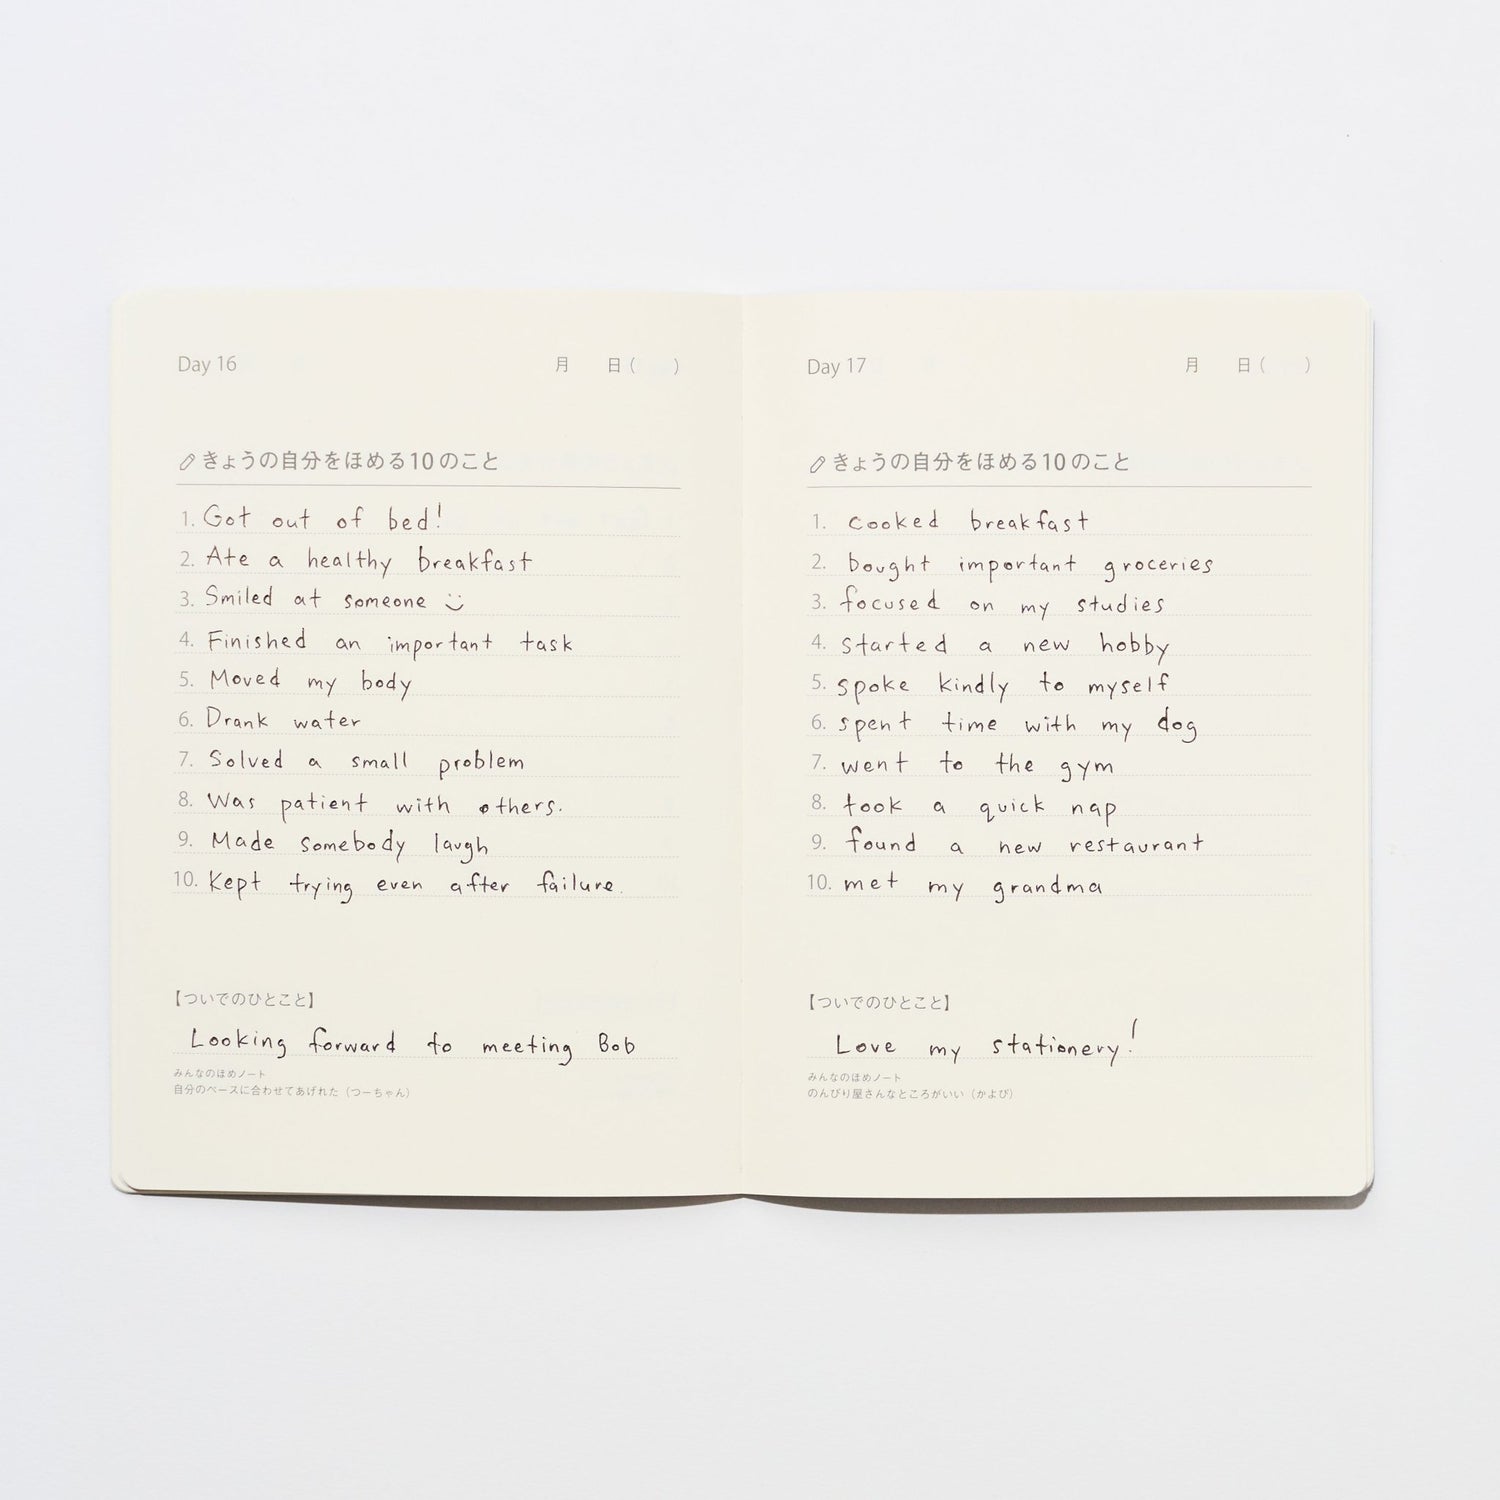 Day 16 月 日( )
きょうの自分をほめる10のこと
1. Got out of bed!
2. Ate a healthy breakfast
3. Smiled at someone
4. Finished an important task
5. Moved my body
6. Drank water
7. Solved a small problem
8. Was patient with others.
9. Made somebody laugh
10. Kept trying even after failure.
【ついでのひとこと】
Looking forward to meeting Bob
みんなのほめノート
自分のペースに合わせてあげれた（つーちゃん）
Day 17 月 日( )
きょうの自分をほめる10のこと
1. cooked breakfast
2. bought important groceries
3. focused on my studies
4. started a new hobby
5. spoke kindly to myself
6. spent time with my dog
7. went to the gym
8. took a quick nap
9. found a new restaurant
10. met my grandma
【ついでのひとこと】
Love my stationery!
みんなのほめノート
のんびり屋さんなところがいい（かよぴ）